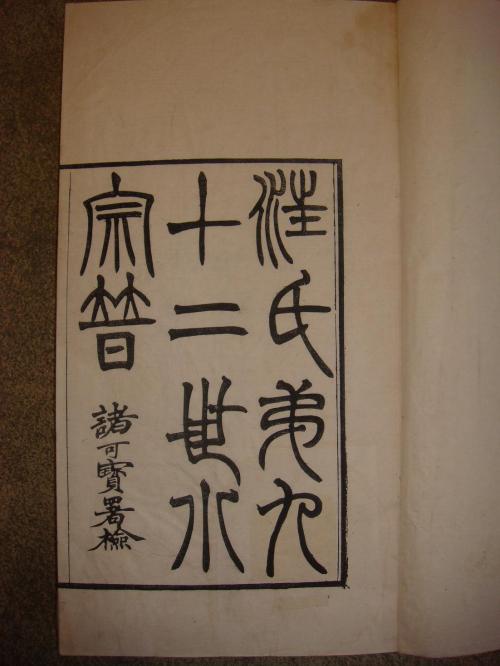 汪氏弟九
十二世小
宗普
諸可寶署檢